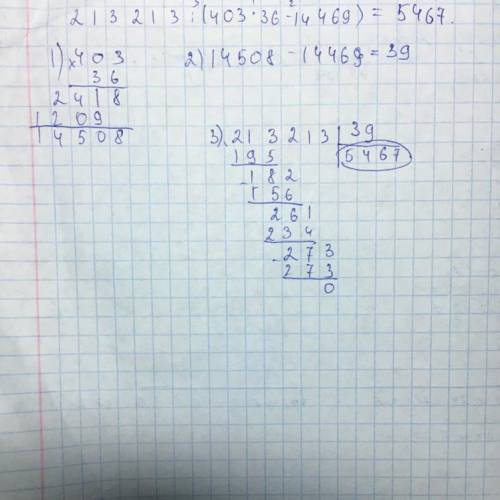 213213:(403·36-14469) = 5467.
3 1 2
1) ×403
36
2418
1209
14508
2) 14508 - 14469 = 39
3) 213213 | 39
195 | 5467
-182
156
261
234
-273
273
0